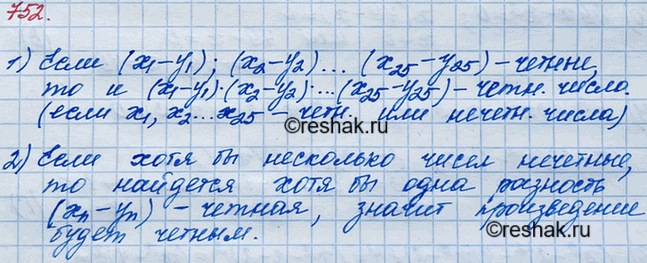 752.
1) Если (x₁-y₁); (x₂-y₂)... (x₂₅-y₂₅) - четные,
то и (x₁-y₁)·(x₂-y₂)·...(x₂₅-y₂₅) - четн. число.
(если x₁, x₂...x₂₅ - четн. или нечетн. числа)
©reshak.ru
2) Если хотя бы несколько чисел нечетные,
то найдется хотя бы одна разность
(xₙ-yₙ) - четная, значит произведение
©reshak.ru
будет четным.